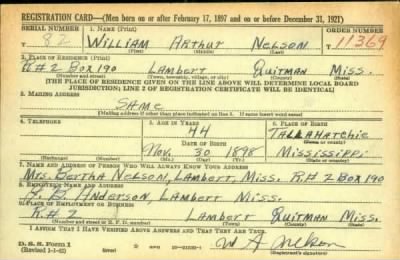 REGISTRATION CARD—(Men born on or after February 17, 1897 and on or before December 31, 1921)
SERIAL NUMBER 1. NAME (Print) ORDER NUMBER
U 82 William Arthur Nelson 11369
(First) (Middle) (Last)
2. PLACE OF RESIDENCE (Print)
R#2 Box 190 Lambert Quitman Miss.
(Number and street) (Town, township, village, or city) (County) (State)
[THE PLACE OF RESIDENCE GIVEN ON THE LINE ABOVE WILL DETERMINE LOCAL BOARD
JURISDICTION; LINE 2 OF REGISTRATION CERTIFICATE WILL BE IDENTICAL]
3. MAILING ADDRESS
Same
[Mailing address if other than place indicated on line 2. If same insert word same]
4. TELEPHONE 5. AGE IN YEARS 6. PLACE OF BIRTH
44 Tallahatchie
DATE OF BIRTH (Town or county)
Nov. 30 1898 Mississippi
(Exchange) (Number) (Mo.) (Day) (Yr.) (State or country)
7. NAME AND ADDRESS OF PERSON WHO WILL ALWAYS KNOW YOUR ADDRESS
Mrs. Bertha Nelson, Lambert, Miss. R#2 Box 190
8. EMPLOYER'S NAME AND ADDRESS
B. Anderson, Lambert Miss.
9. PLACE OF EMPLOYMENT OR BUSINESS
R#2 Lambert Quitman Miss.
(Number and street or R. F. D. number) (Town) (County) (State)
I AFFIRM THAT I HAVE VERIFIED ABOVE ANSWERS AND THAT THEY ARE TRUE.
D. S. S. Form 1
(Revised 1-1-42) W A Nelson
(Registrant's signature)